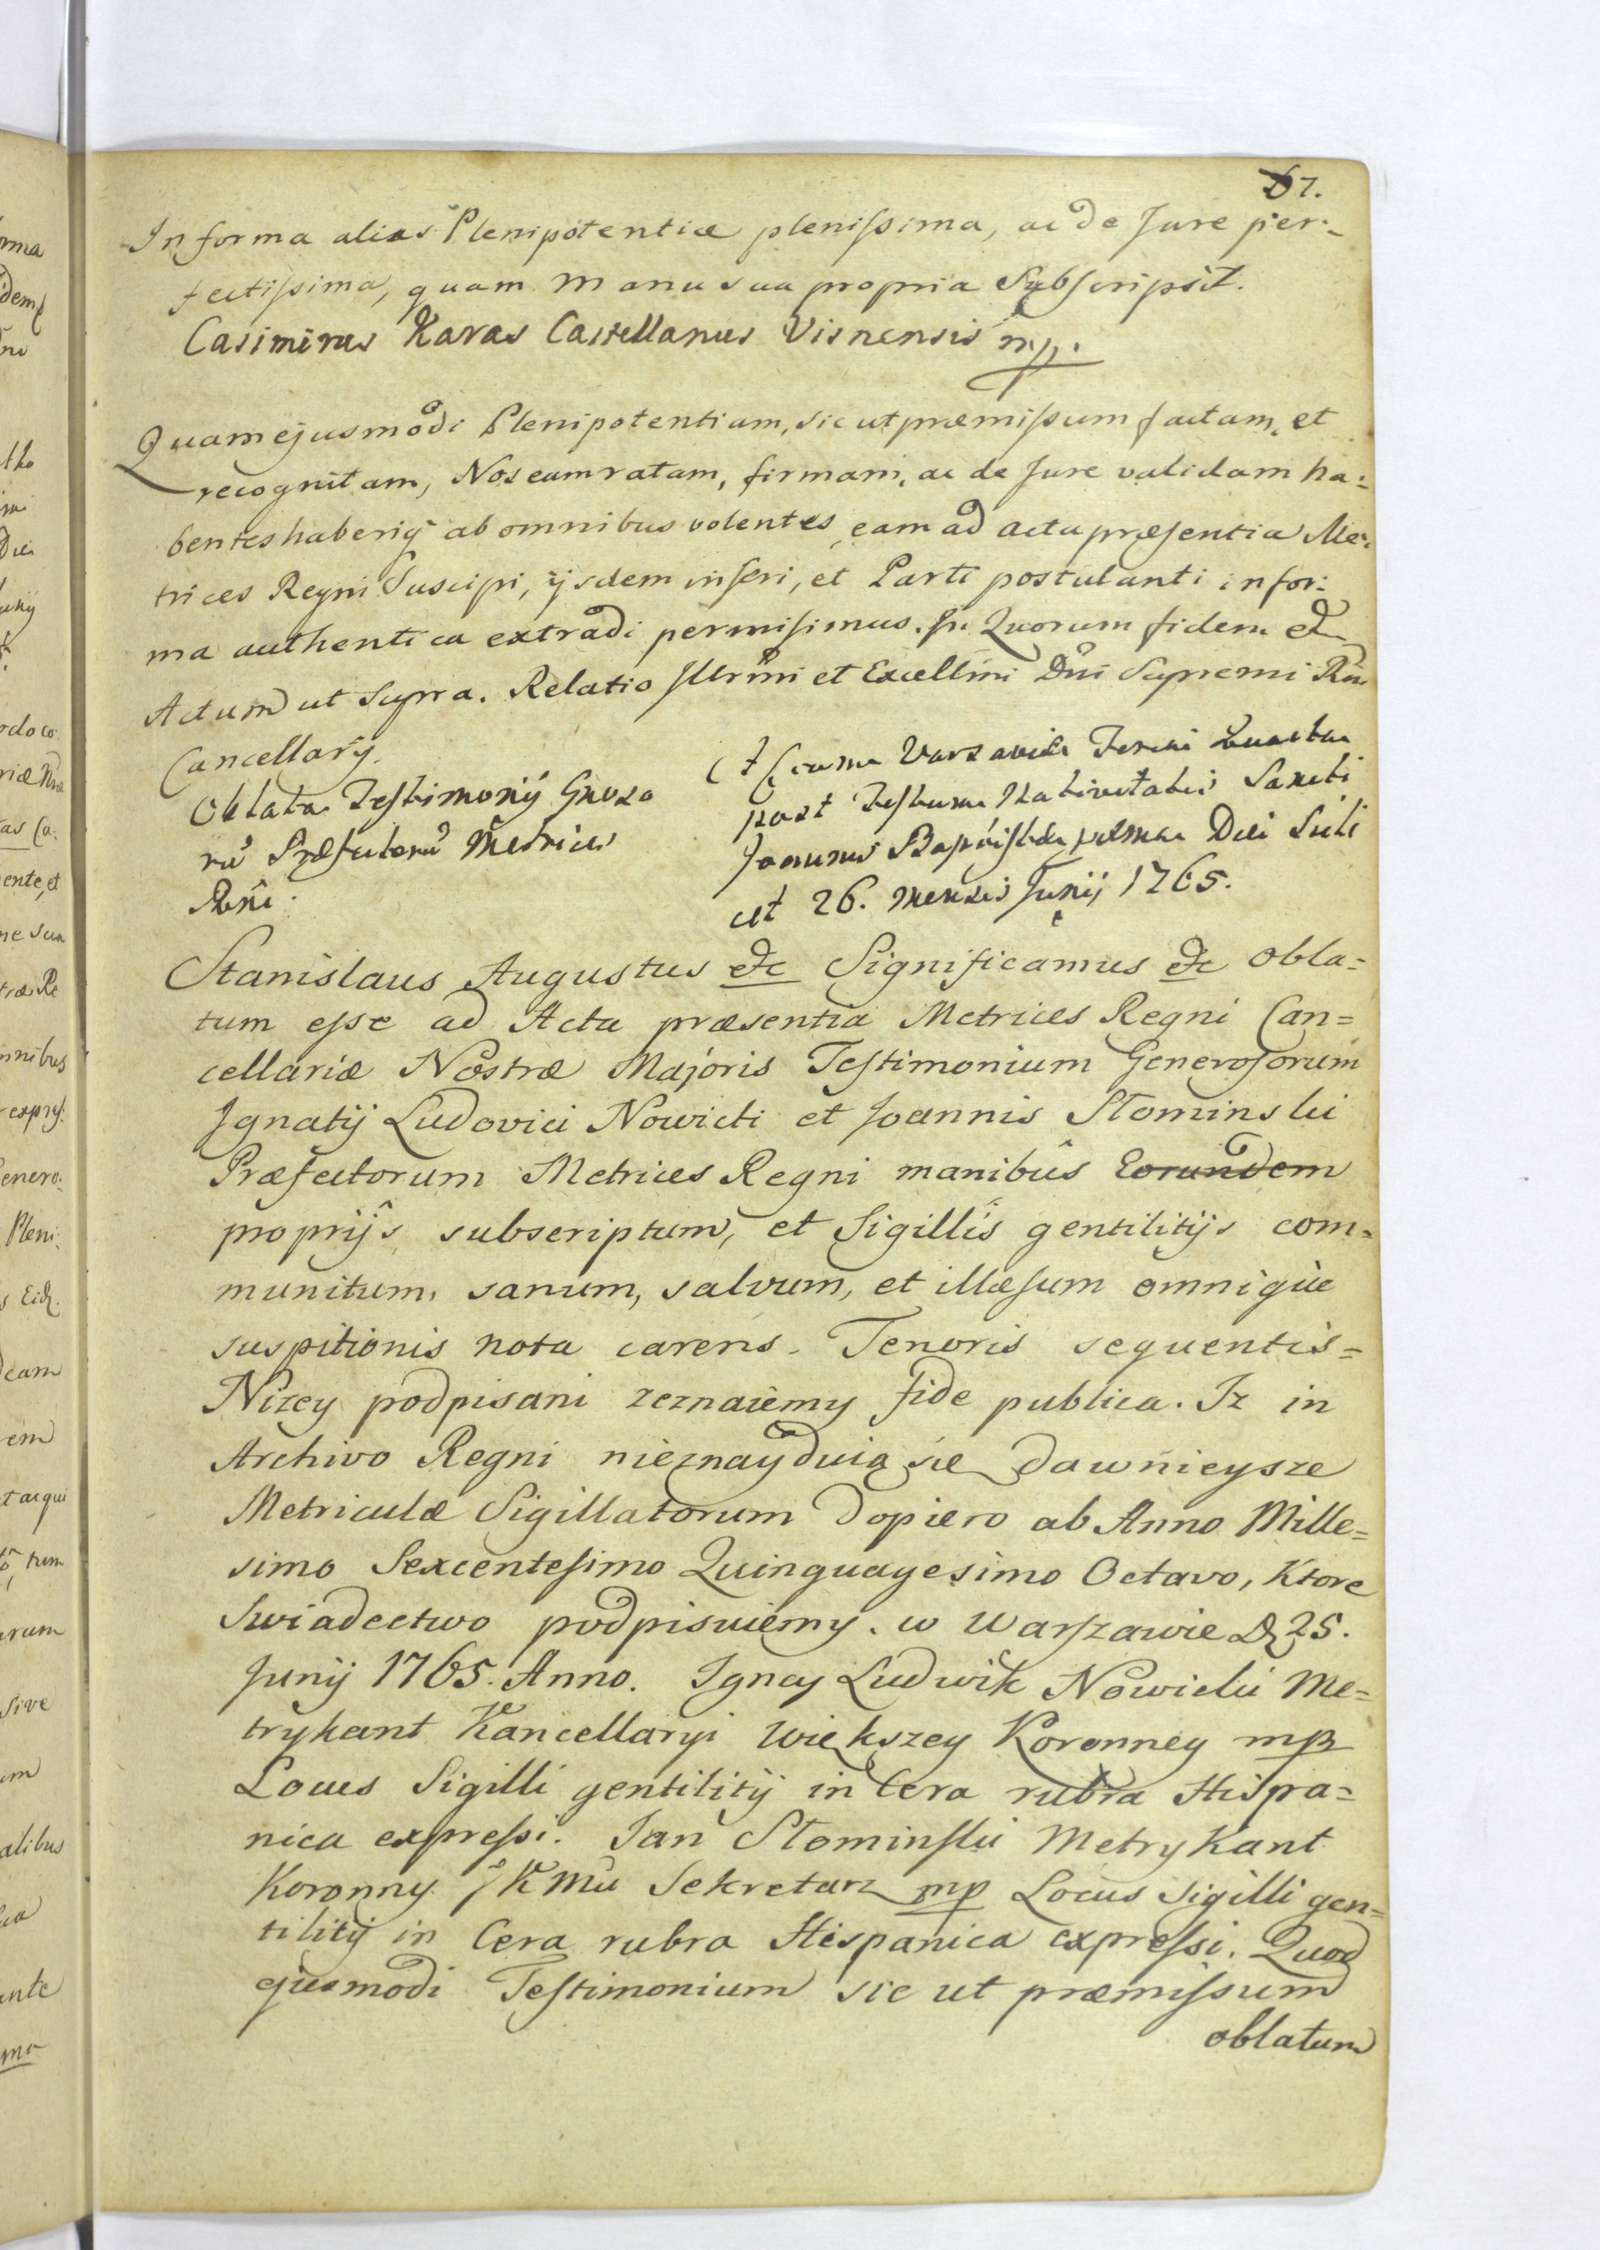 67.
In forma alias Plenipotentiæ plenissima, ac de Jure per-
fectissima, quam Manu sua propria Subscripsit.
Casimirus Karas Castellanus Visnensis mp.
Quam ejusmodi Plenipotentiam, sic ut præmissum factam, et
recognitam, Nos eam ratam, firmam, ac de Jure validam ha-
bentes haberiq ab omnibus volentes, eam ad acta præsentia Me-
trices Regni Suscipi, ijsdem inseri, et Parti postulanti in for-
ma authentica extradi permisimus. In Quorum fidem etc
Actum ut Supra. Relatio Illrmi et Excellmi Dni Supremi Rni
Cancellarij.
Oblata Testimonij Gnoso
rū Præfectorū Metrices
Rni.
Actum Varsaviæ Feria quarta
post Festum Nativitatis Sancti
Joannis Baptistæ proxima Die Scili
cet 26. Mensis Junij 1765.
Stanislaus Augustus etc Significamus etc Obla=
tum esse ad Acta præsentia Metrices Regni Can=
cellariæ Nostræ Majoris Testimonium Generosorum
Ignatij Ludovici Nowicki et Joannis Słominski
Præfectorum Metrices Regni manibus Eorundem
proprijs subscriptum, et Sigillis gentilitijs com=
munitum, sanum, salvum, et illæsum omnique
suspitionis nota carens. Tenoris sequentis=
Nizey podpisani zeznaiemy fide publica. Iz in
Archivo Regni nieznayduią się dawnieysze
Metriculæ Sigillatorum dopiero ab Anno Mille=
simo Sexcentesimo Quinquagesimo Octavo, Ktore
Swiadectwo podpisuiemy. w Warszawie D 25.
Junij 1765. Anno. Ignacy Ludwik Nowicki Me=
trykant Kancellaryi Większey Koronney mp
Locus Sigilli gentilitij in Cera rubra Hispa=
nica expressi. Jan Słominski Metrykant
Koronny JKMci Sekretarz mp Locus Sigilli gen=
tilitij in Cera rubra Hispanica expressi. Quod
ejusmodi Testimonium sic ut præmissum
oblatum